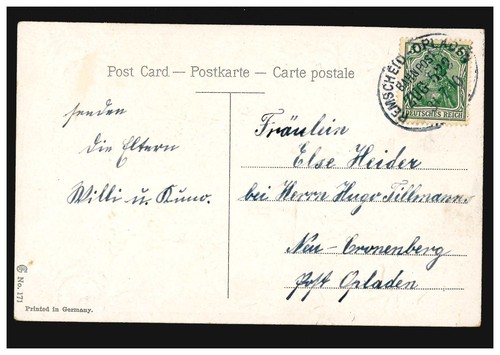 Post Card — Postkarte — Carte postale
senden
die Eltern
Willi u. Kuno.
Fräulein
Else Heider
bei Herrn Hugo Tillmanns
Neu-Cronenberg
Post Opladen
REMSCHEID-OPLADEN
BAHNPOST
ZUG
DEUTSCHES REICH
No. 171
Printed in Germany.